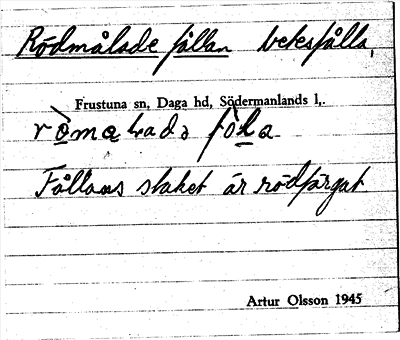 Rödmålade fållan betesfålla,
Frustuna sn, Daga hd, Södermanlands l,.
Fållans staket är rödfärgat
Artur Olsson 1945